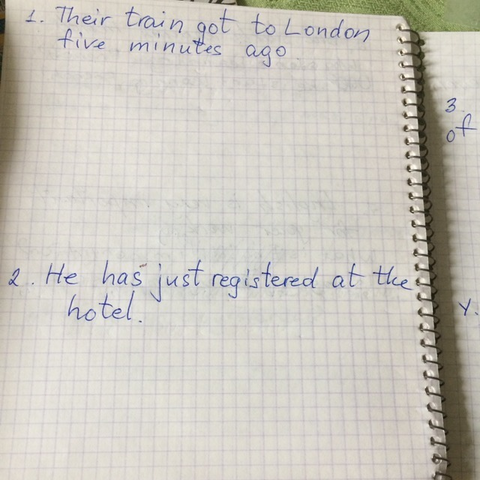 1. Their train got to London
five minutes ago
2. He has just registered at the
hotel.
3.
of